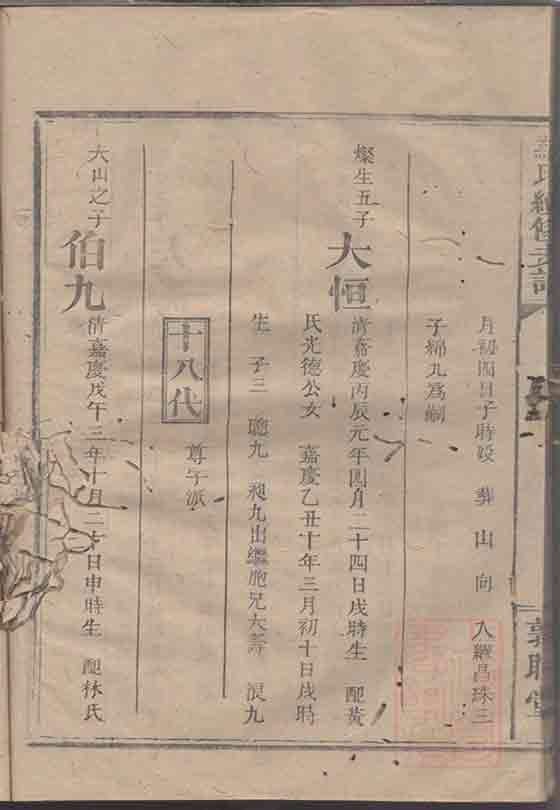 月初四日子時歿 葬 山 向 入繼昌珠三
子綿九爲嗣
燦生五子
大恒
清嘉慶丙辰元年四月二十四日戌時生 配黃
氏光德公女 嘉慶乙丑十年三月初十日戌時
生 子三 聰九 昶九出繼胞兄大壽 浪九
十八代
尊字派
大山之子
伯九
清嘉慶戊午三年十月二十日申時生 配林氏